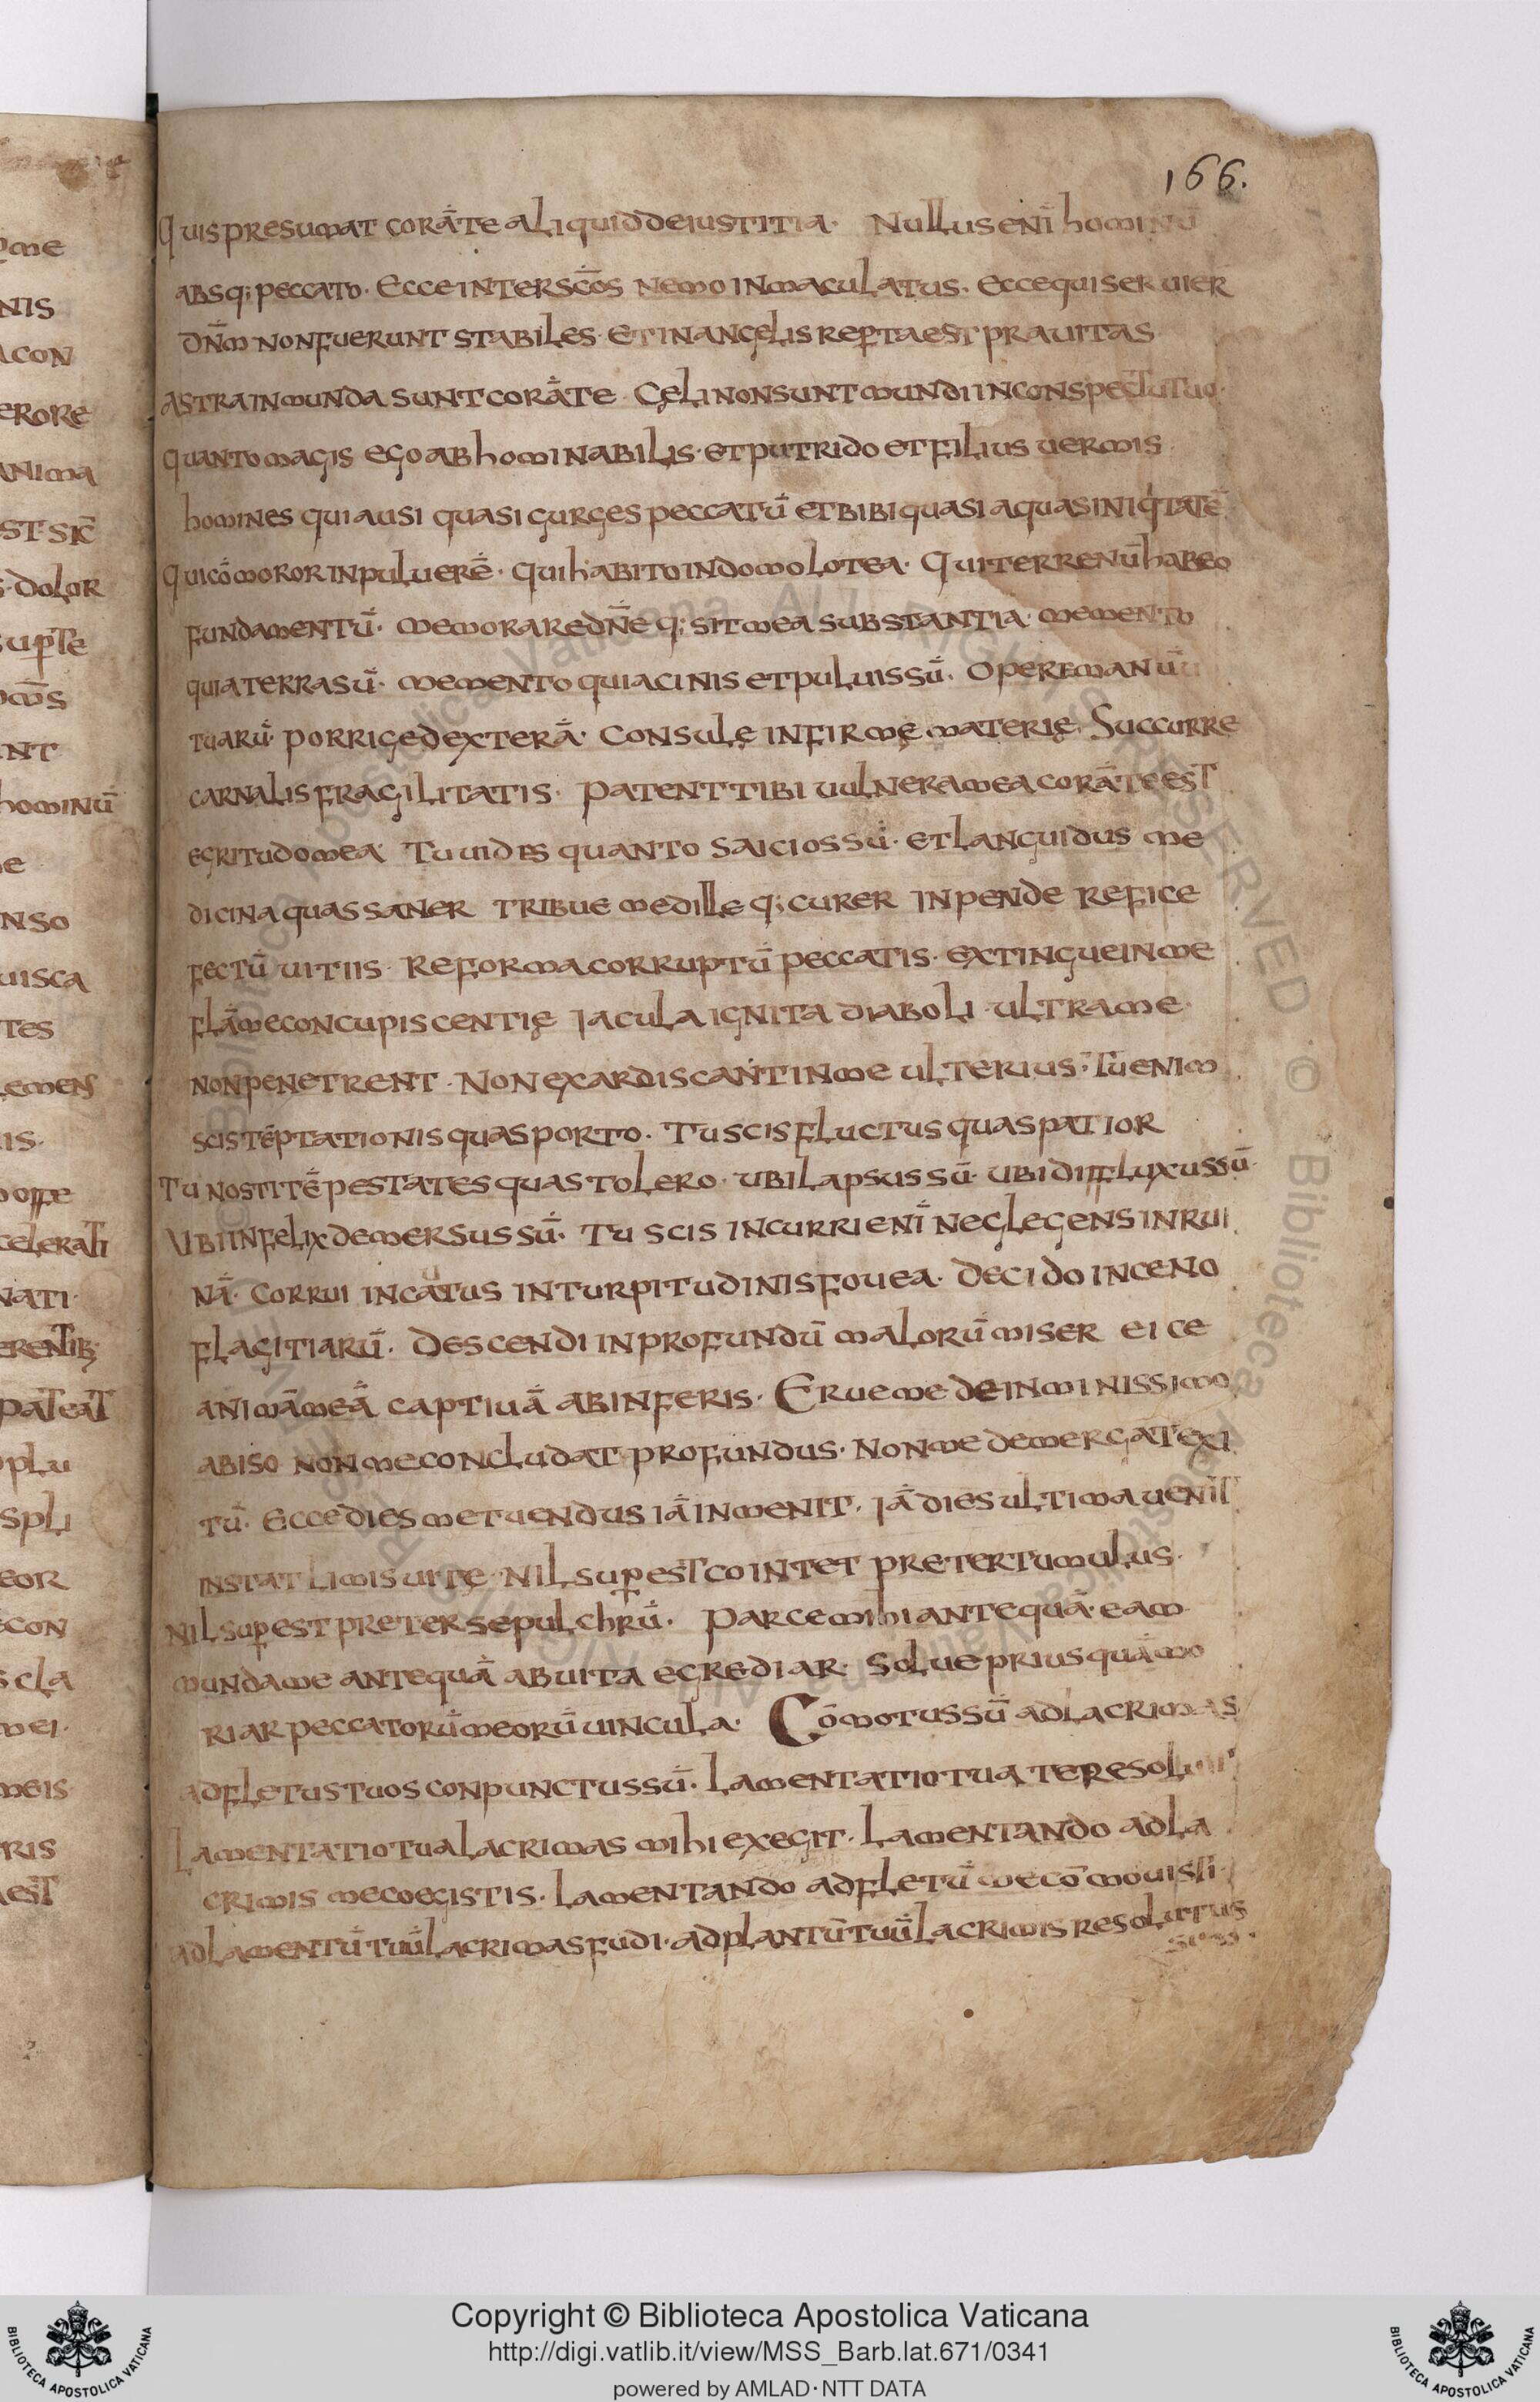 166.
Quis presumat corā te aliquid de iustitia· Nullus enī hominū
absq; peccato· Ecce inter sc̄os nemo inmaculatus· Ecce qui seruier
dn̄m non fuerunt stabiles· Et in angelis rep̱ta est prauitas
Astra inmunda sunt corā te· Cęli non sunt mundi in conspectu tuo·
quanto magis ego abhominabilis· et putrido et filius uermis
homines qui ausi quasi gurges peccatū et bibi quasi aquas iniqͥtatē
Qui cōmoror in puluerē· Qui habito in domo lotea· Qui terrenū habeo
fundamentū· Memorare dn̄e q; sit mea substantia· memento
quia terra sū· memento quia cinis et puluis sū· Opere manuū
tuarū porrige dexterā· consulę infirmę materię· Succurre
carnalis fragilitatis· Patent tibi uulnera mea corā te est
egritudo mea· Tu uides quanto saicios sū· et languidus me
dicina quas saner tribue me dille q; curer inpende Refice
fectū uitiis· Reforma corruptū peccatis· extingue in me
flāme concupiscentię Iacula ignita diaboli· ultra me·
non penetrent· Non exardiscant in me ulterius· Tu enim
scis tēptationis quas porto· Tu scis fluctus quas patior
Tu nosti tēpestates quas tolero· ubi lapsus sū· ubi diffluxus sū·
Ubi infelix demersus sū· Tu scis incurri enī neglegens in rui
nā· corrui incautus in turpitudinis fouea· Decido in ceno
flagitiarū· Descendi in profundū malorū miser eice
animā meā captiuā ab inferis· Erue me de inminissimo
abiso non me concludat profundus· Non me demergat exi
tū· Ecce dies metuendus iā inmenit· Iā dies ultima uenit
instat limis uitę· Nil sup̱est cointet preter tumulus·
Nil sup̱est preter sepulchrū· Parce mihi antequā· eam
munda me antequā ab uita egrediar· Solue priusquā mo
riar peccatorū meorū uincula· Cōmotus sū ad lacrimas
ad fletus tuos conpunctus sū· Lamentatio tua te resoluit
Lamentatio tua lacrimas mihi exegit· Lamentando ad la
crimis me coegistis· Lamentando ad fletū me cōmouisti·
ad lamentū tuū lacrimas fudi· ad plantū tuū lacrimis resolutus
sum·
Copyright © Biblioteca Apostolica Vaticana
http://digi.vatlib.it/view/MSS_Barb.lat.671/0341
powered by AMLAD·NTT DATA